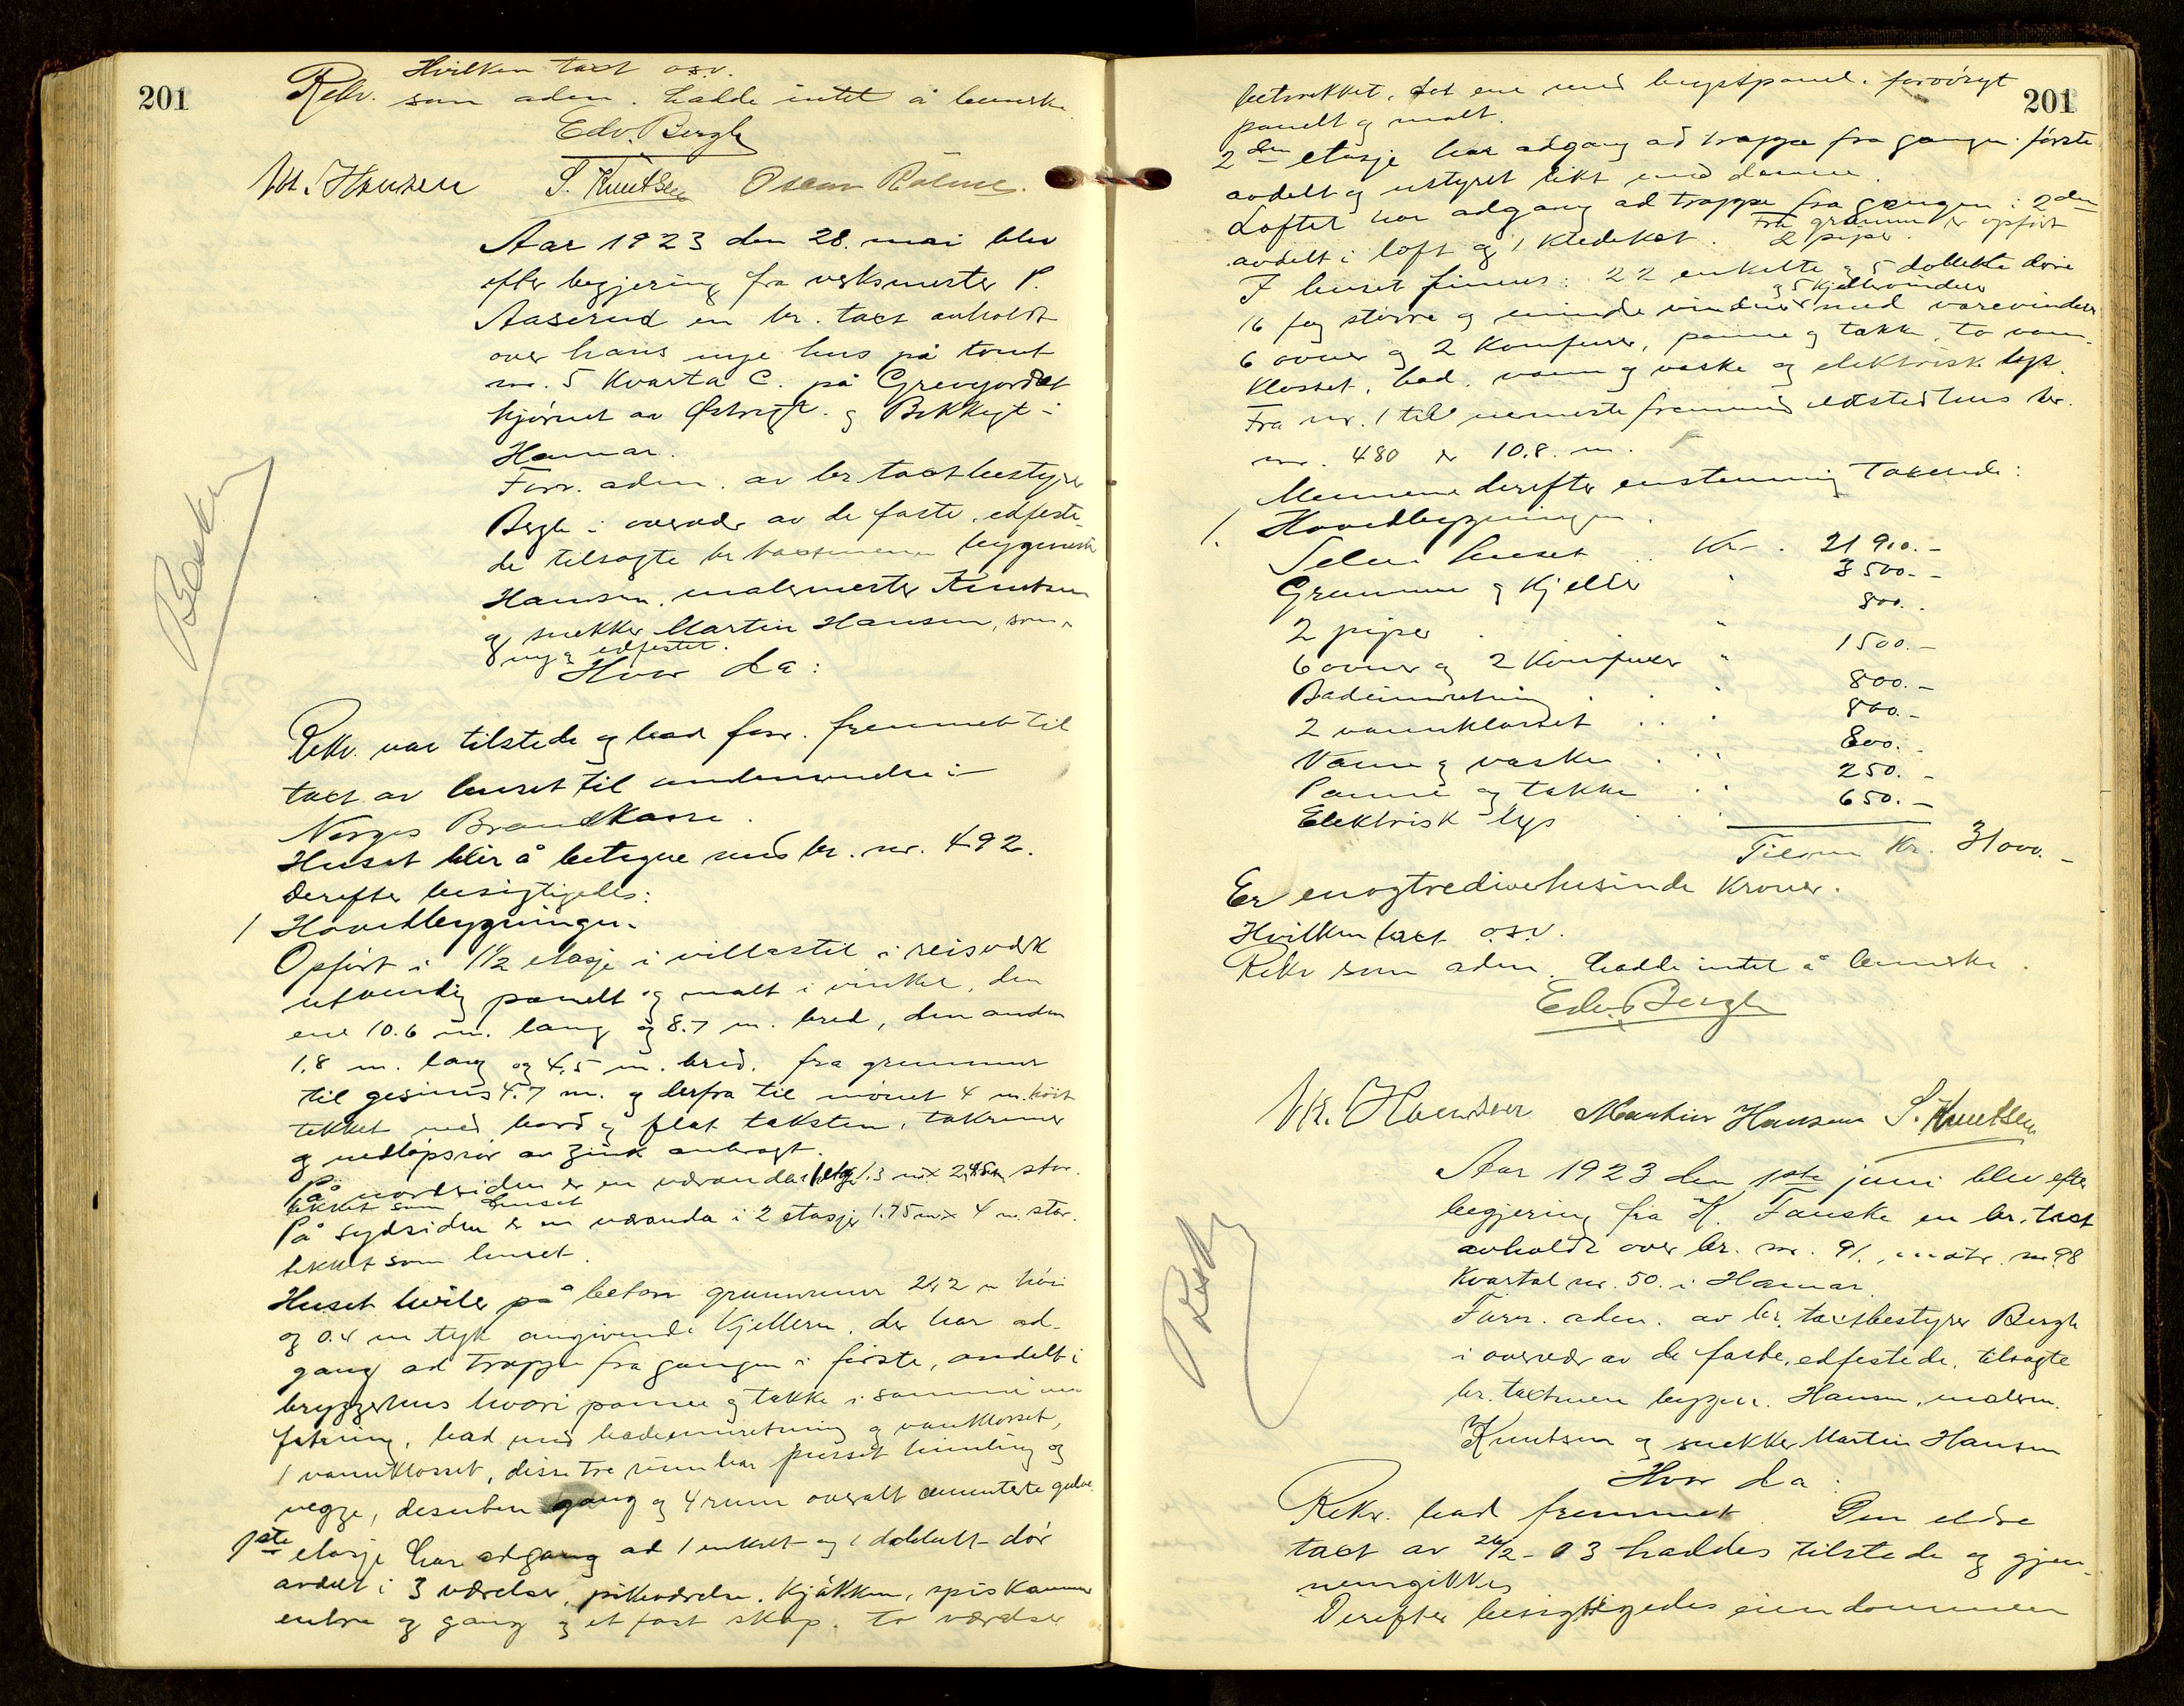 201
Hvilken taxt osv.
Rekv. som aden. hadde intet å bemerke
Edv. Bergh
M. Hansen S. Knutsen Oscar
Aar 1923 den 28. mai blev
efter begjering fra verksmester P.
Aaserud en br. taxt avholdt
over hans nye hus på tomt
nr. 5 Kvartal C. på Grevejordet
hjørnet av Østregt. og Bekkegt i
Hamar.
Forr. adm. av br. taxtbestyrer
Bergh i overvær av de faste, edfeste-
de tilsagte br. taxtmenn byggmester
Hansen, malermester Knutsen
og snekker Martin Hansen, som
edfestet.
Hvor da:
Besk
Rekv. var tilstede og bad forr. fremmet til
taxt av huset til indmeldelse i
Norges Brandkasse.
Huset blir å betegne med br. nr. 492.
Derefter besigtigedes:
1 Hovedbygningen.
Opført i 1 1/2 etasje i villastil i reisverk
utvendig panelt og malt i vinkel, den
ene 10.6 m. lang og 8.7 m. bred, den anden
1.8 m. lang og 4.5 m. bred, fra grunmur
til gesims 4.7 m. og derfra til mønet 4 m. høit
tekket med bord og flat taksten, takrenner
og nedløpsrør av zink anbragt.
På nordsiden er en veranda 1 etg. 1.3 m x 2.45 m stor.
tekket som huset
På sydsiden er en veranda i 2 etasjer 1.75 m x 4 m. stor.
tekket som huset.
Huset hviler på beton grunmur 2,2 m høi
og 0.4 m tyk omgivende kjelleren, der har ad-
gang ad trappe fra gangen i første, avdelt i
bryggerhus hvori panne og takke i samme inn
fatning, bad med badeinnretning og vanklosset,
1 vannklosset, disse tre rum har pusset himling og
vegge, desuten gang og 4 rum overalt cementerte gulve.
1ste etasje har adgang ad 1 enkelt og 1 dobbelt dør
avdelt i 3 værelser, pikeværelse, kjøkken, spiskammer
entre og gang og et fast skap. to værelser
201
betrekket, det ene med brystpanel. forøvrigt
panelt og malt.
2den etasje har adgang ad trappe fra gangen i første
avdelt og utstyret likt med denne.
Loftet har adgang ad trappe fra gangen i 2den
avdelt i loft og 1 kledeskot. Fra grunnen er opført
2 piper.
I huset finnes: 22 enkelte og 5 dobbelte døre
og 5 kjellervinduer
16 fag større og mindre vinduer med varevinduer
6 ovner og 2 Komfurer, panne og takke, to van-
klosset, bad, vann og vaske og elektrisk lys.
Fra nr. 1 til nærmeste fremmed ildstedhus br.
nr. 480 er 10.8. m.
Mennene derefter enstemmig taxerede:
1. Hovedbygningen.
Selve huset Kr. 21 900.-
Grunmur og Kjeller " 3 500.-
2 piper " 800.-
6 ovner og 2 Komfurer " 1 500.-
Badeinnretning " 800.-
2 vannklosset " 800.-
Vann og vaske " 800.-
Panne og takke " 250.-
Elektrisk lys 650.-
Tilsam Kr. 31 000.-
Er enogtredivetusinde Kroner.
Hvilken taxt osv.
Rekv som aden. hadde intet å bemerke.
Edv. Bergh
M. Hansen Martin Hansen S. Knutsen
Aar 1923 den 1ste juni blev efter
begjering fra K. Fauske en br. taxt
avholdt over br. nr. 91, matr. nr 98
Kvartal nr. 50. i Hamar.
Forr. adm. av br. taxtbestyrer Bergh
i overvær av de faste, edfestede, tilsagte
br. taxtmenn byggm. Hansen, malerm.
Knutsen og snekker Martin Hansen
Hvor da:
Besk
Rekv. bad fremmet. Den eldre
taxt av 24/2-03 haddes tilstede og gjen-
nemgikkes
Derefter besigtigedes eiendommen